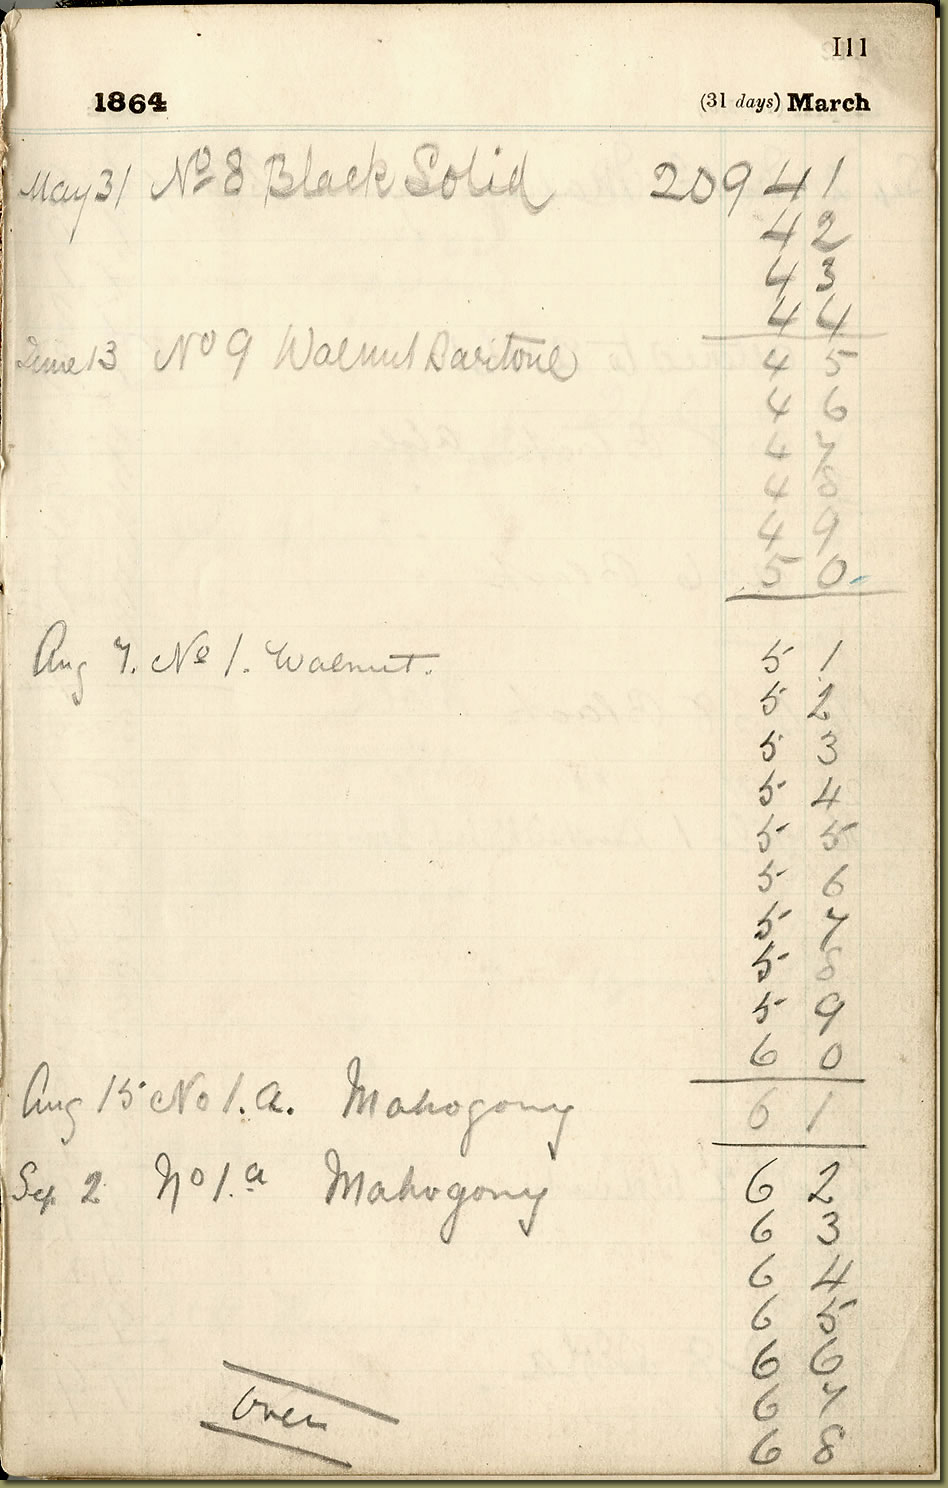 111
1864 (31 days) March
May 31 No 8 Black Solid 20941
42
43
44
June 13 No 9 Walnut Baritone 45
46
47
48
49
50
Aug 7. No 1. Walnut. 51
52
53
54
55
56
57
58
59
60
Aug 15 No 1.a. Mahogony 61
Sep 2 No 1.a Mahogony 62
63
64
65
66
67
Over
68